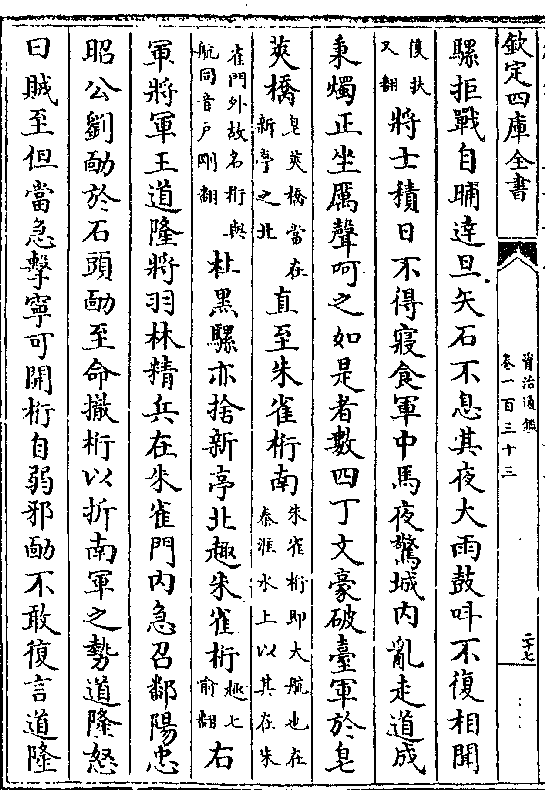 欽定四庫全書
資治通鑑
卷一百三十三
二十七
騾拒戰自晡達旦矢石不息其夜大雨鼓呌不復相聞
復扶
又翻
將士積日不得寢食軍中馬夜驚城内亂走道成
秉燭正坐厲聲呵之如是者數四丁文豪破臺軍於皂
莢橋
皂莢橋當在
新亭之北
直至朱雀桁南
朱雀桁即大航也在
秦淮水上以其在朱
雀門外故名桁與
航同音戶剛翻
杜黑騾亦捨新亭北趣朱雀桁
趣七
俞翻
右
軍將軍王道隆將羽林精兵在朱雀門内急召鄱陽忠
昭公劉勔於石頭勔至命撤桁以折南軍之勢道隆怒
曰賊至但當急擊寧可開桁自弱邪勔不敢復言道隆